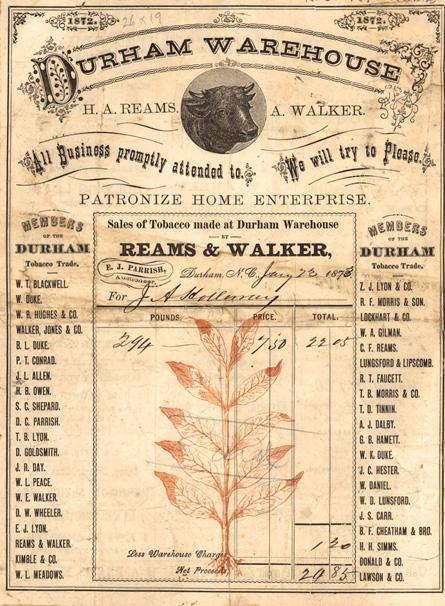 1872. 26 x 19 1872.
DURHAM WAREHOUSE
H. A. REAMS. A. WALKER.
All Business promptly attended to. We will try to Please.
PATRONIZE HOME ENTERPRISE.
MEMBERS
OF THE
DURHAM
Tobacco Trade.
W. T. BLACKWELL.
W. DUKE.
W. R. HUGHES & CO.
WALKER, JONES & CO.
B. L. DUKE.
P. T. CONRAD.
J. L. ALLEN.
H. B. OWEN.
S. C. SHEPARD.
D. C. PARRISH.
T. B. LYON.
D. GOLDSMITH.
J. R. DAY.
W. L. PEACE.
W. E. WALKER.
D. W. WHEELER.
E. J. LYON.
REAMS & WALKER.
KIMBLE & CO.
W. L. MEADOWS.
Sales of Tobacco made at Durham Warehouse
BY
REAMS & WALKER,
E. J. PARRISH,
Auctioneer.
Durham, N. C., Jany 23 1873
For J A Holloway
POUNDS. PRICE. TOTAL.
294 7 50 22 05
Less Warehouse Charges 1 20
Net Proceeds 20 85
MEMBERS
OF THE
DURHAM
Tobacco Trade.
Z. J. LYON & CO.
R. F. MORRIS & SON.
LOCKHART & CO.
W. A. GILMAN.
C. F. REAMS.
LUNGSFORD & LIPSCOMB.
R. T. FAUCETT.
T. B. MORRIS & CO.
T. D. TINNIN.
A. J. DALBY.
G. B. HAMETT.
W. K. DUKE.
J. C. HESTER.
W. DANIEL.
W. D. LUNSFORD.
J. S. CARR.
B. F. CHEATHAM & BRO.
H. H. SIMMS.
DONALD & CO.
LAWSON & CO.